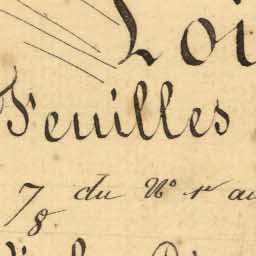 Loi
Feuilles
7/8. du N° 1er au